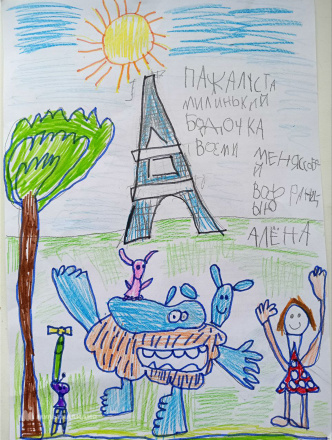 ПАЖАЛУСТА
МИЛИНЬКИЙ
БОДОЧКА
ВОЗМИ
МЕНЯССОБО
Й
ВОФРАНЦ
ЫЮ
АЛЁНА